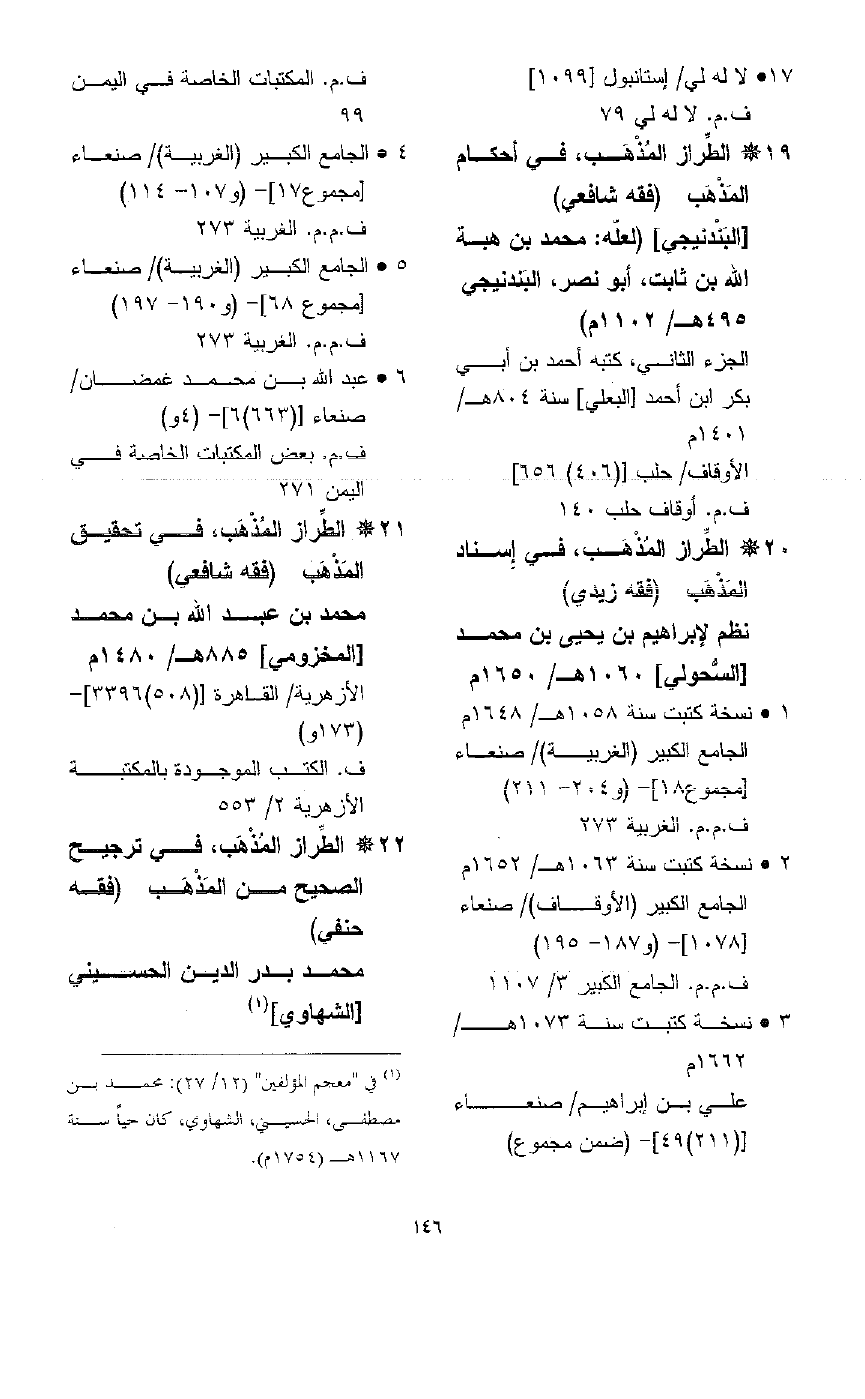 ١٧● لا له لي/ إستانبول [١٠٩٩]
ف.م. لا له لي ٧٩
١٩ ❋ الطِّراز المُذْهَب، في أحكام
المَذْهَب (فقه شافعي)
[البَنْدنيجي] (لعلّه: محمد بن هبة
الله بن ثابت، أبو نصر، البَندنيجي
٤٩٥هـ/ ١١٠٢م)
الجزء الثاني، كتبه أحمد بن أبي
بكر ابن أحمد [البعلي] سنة ٨٠٤هـ/
١٤٠١م
الأوقاف/ حلب [(٤٠٦) ٦٥٦]
ف.م. أوقاف حلب ١٤٠
٢٠ ❋ الطِّراز المُذْهَب، في إسناد
المَذْهَب (فقه زيدي)
نظم لإبراهيم بن يحيى بن محمد
[السُّحولي] ١٠٦٠هـ/ ١٦٥٠م
١ ● نسخة كتبت سنة ١٠٥٨هـ/ ١٦٤٨م
الجامع الكبير (الغربية)/ صنعاء
[مجموع١٨]– (و٢٠٤– ٢١١)
ف.م.م. الغربية ٢٧٣
٢ ● نسخة كتبت سنة ١٠٦٣هـ/ ١٦٥٢م
الجامع الكبير (الأوقاف)/ صنعاء
[١٠٧٨]– (و١٨٧– ١٩٥)
ف.م.م. الجامع الكبير ٣/ ١١٠٧
٣ ● نسخة كتبت سنة ١٠٧٣هـ/
١٦٦٢م
علي بن إبراهيم/ صنعاء
[(٢١١)٤٩]– (ضمن مجموع)
ف.م. المكتبات الخاصة في اليمن
٩٩
٤ ● الجامع الكبير (الغربية)/ صنعاء
[مجموع١٧]– (و١٠٧– ١١٤)
ف.م.م. الغربية ٢٧٣
٥ ● الجامع الكبير (الغربية)/ صنعاء
[مجموع ٦٨]– (و١٩٠– ١٩٧)
ف.م.م. الغربية ٢٧٣
٦ ● عبد الله بن محمد غمضان/
صنعاء [(٦٦٣)٦]– (٤و)
ف.م. بعض المكتبات الخاصة في
اليمن ٢٧١
٢١ ❋ الطِّراز المُذْهَب، في تحقيق
المَذْهَب (فقه شافعي)
محمد بن عبد الله بن محمد
[المخزومي] ٨٨٥هـ/ ١٤٨٠م
الأزهرية/ القاهرة [(٥٠٨)٣٣٩٦]–
(١٧٣و)
ف. الكتب الموجودة بالمكتبة
الأزهرية ٢/ ٥٥٣
٢٢ ❋ الطِّراز المُذْهَب، في ترجيح
الصحيح من المَذْهَب (فقه
حنفي)
محمد بدر الدين الحسيني
[الشهاوي](١)
(١) في "معجم المؤلفين" (١٢/ ٢٧): محمد بن
مصطفى، الحسيني، الشهاوي، كان حياً سنة
١١٦٧هـ (١٧٥٤م).
١٤٦